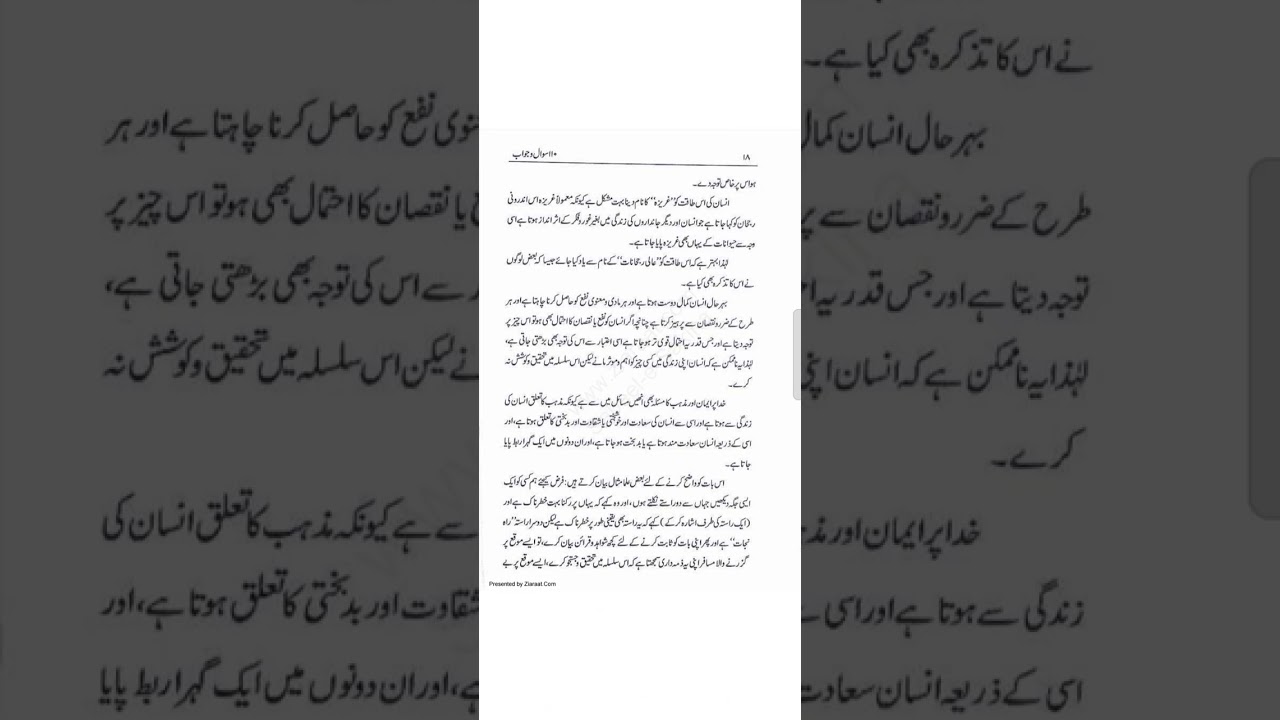 ۱۸
۱۱۰ سوال و جواب
ہو اس پر خاص توجہ دے۔
انسان کی اس طاقت کو ”غریزہ“ کا نام دینا بہت مشکل ہے کیونکہ معمولاً غریزہ اس اندرونی
رجحان کو کہا جاتا ہے جو انسان اور دیگر جانداروں کی زندگی میں بغیر غور و فکر کے اثر انداز ہوتا ہے اسی
وجہ سے حیوانات کے یہاں بھی غریزہ پایا جاتا ہے۔
لہٰذا بہتر ہے کہ اس طاقت کو ”عالی رجحانات“ کے نام سے یاد کیا جائے جیسا کہ بعض لوگوں
نے اس کا تذکرہ بھی کیا ہے۔
بہر حال انسان کمال دوست ہوتا ہے اور ہر مادی و معنوی نفع کو حاصل کرنا چاہتا ہے اور ہر
طرح کے ضرر و نقصان سے پرہیز کرتا ہے چنانچہ اگر انسان کو نفع یا نقصان کا احتمال بھی ہو تو اس چیز پر
توجہ دیتا ہے اور جس قدر یہ احتمال قوی تر ہو جاتا ہے اسی اعتبار سے اس کی توجہ بھی بڑھتی جاتی ہے،
لہٰذا یہ ناممکن ہے کہ انسان اپنی زندگی میں کسی چیز کو اہم و موثر مانے لیکن اس سلسلہ میں تحقیق و کوشش نہ
کرے۔
خدا پر ایمان اور مذہب کا مسئلہ بھی انھیں مسائل میں سے ہے کیونکہ مذہب کا تعلق انسان کی
زندگی سے ہوتا ہے اور اسی سے انسان کی سعادت اور خوشبختی یا شقاوت اور بدبختی کا تعلق ہوتا ہے، اور
اسی کے ذریعہ انسان سعادت مند ہوتا ہے یا بدبخت ہو جاتا ہے، اور ان دونوں میں ایک گہرا ربط پایا
جاتا ہے۔
اس بات کو واضح کرنے کے لئے بعض علما مثال بیان کرتے ہیں: فرض کیجئے ہم کسی کو ایک
ایسی جگہ دیکھیں جہاں سے دو راستے نکلتے ہوں، اور وہ کہے کہ یہاں پر رکنا بہت خطرناک ہے اور
(ایک راستہ کی طرف اشارہ کر کے) کہے کہ یہ راستہ بھی یقینی طور پر خطرناک ہے لیکن دوسرا راستہ ”راہ
نجات“ ہے اور پھر اپنی بات کو ثابت کرنے کے لئے کچھ شواہد و قرائن بیان کرے، تو ایسے موقع پر
گزرنے والا مسافر اپنی یہ ذمہ داری سمجھتا ہے کہ اس سلسلہ میں تحقیق و جستجو کرے، ایسے موقع پر بے
Presented by Ziaraat.Com